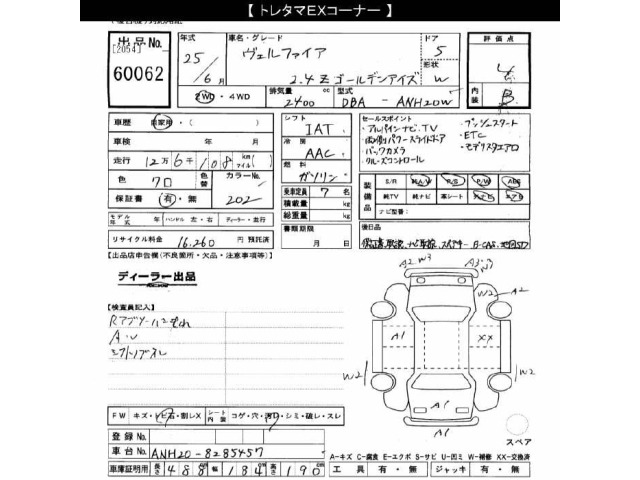 【 トレタマEXコーナー 】
出品No. [2054] 60062
年式 25/6月
車名・グレード ヴェルファイア 2.4 Z ゴールデンアイズ
ドア 5
形状 W
評価点
内装 B
2WD・4WD
排気量 2400 cc
型式 DBA - ANH20W
車歴 自家用・( )
車検 年 月
走行 12万6千108 km(マイル)
色 クロ 色替 カラーNo. 202
保証書 有・無
シフト IAT
冷房 AAC
燃料 ガソリン
乗車定員 7 名
積載量 kg
総重量 kg
書類期限 月 日
セールスポイント
・アルパインナビ、TV
・両側パワースライドドア
・バックカメラ
・クルーズコントロール
・プッシュスタート
・ETC
・モデリスタエアロ
装備品 S/R 純A/W P/S P/W ABS
純TV 純ナビ 革シート エアB
ナビ型番:
モデル年式 年 ハンドル 左・右 ディーラー・並行
リサイクル料金 16,260 円 預託済
後日品
【出品店申告欄(不良箇所・欠品・注意事項等)】
ディーラー出品
【検査員記入】
A・U
A2 W3 A3 W3
W2 A2
A1 XX
W2 W2
A1
A1
スペア
FW キズ・トビ石・割レX シート内装 コゲ・穴・汚レ・シミ・破レ・スレ
登録No.
車台No. ANH20-8285457
車庫証明用 長さ 488 cm 幅 184 cm 高さ 190 cm
A-キズ C-腐食 E-エクボ S-サビ U-凹ミ W-補修 XX-交換済
工具 有・無 ジャッキ 有・無